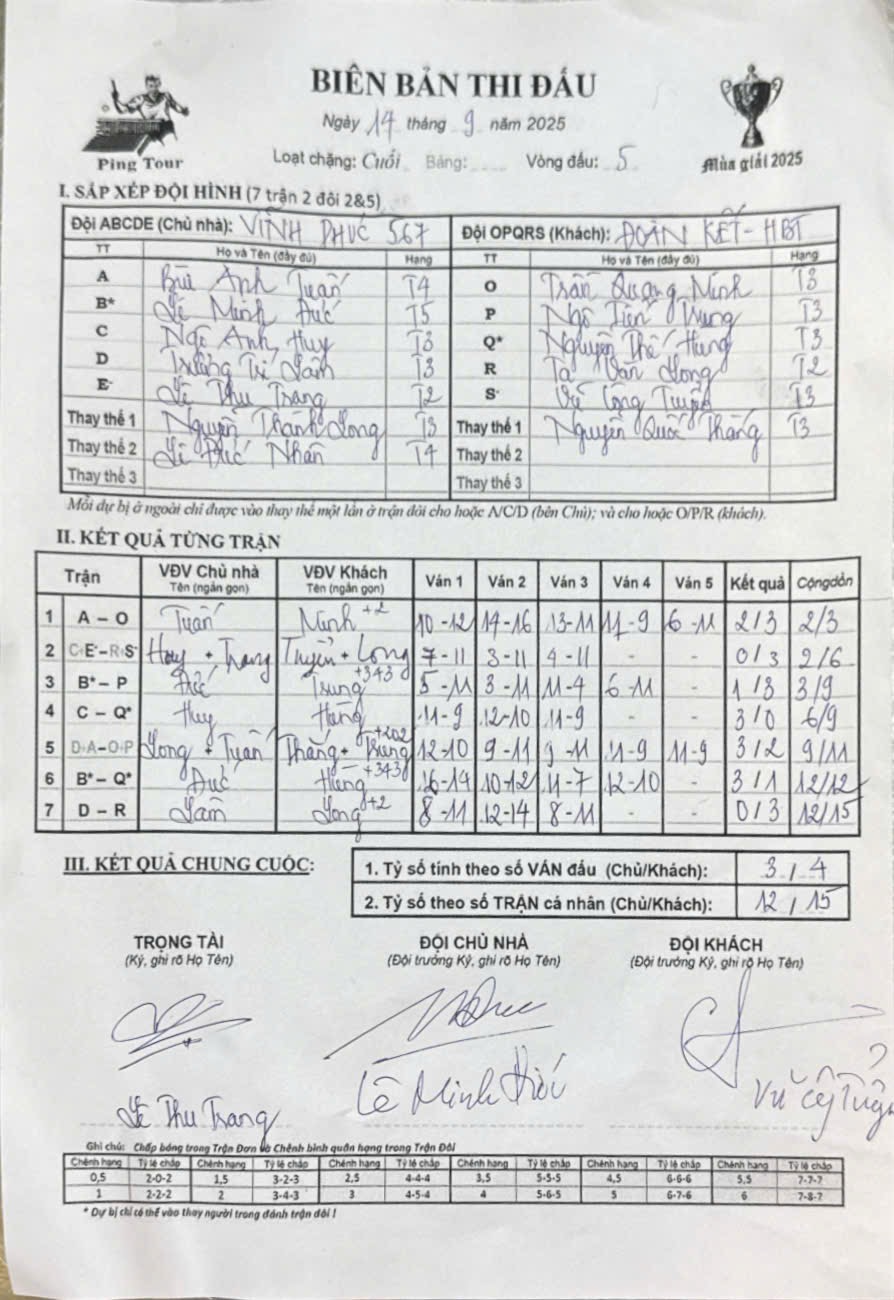 BIÊN BẢN THI ĐẤU
Ngày 14 tháng 9 năm 2025
Ping Tour
Loạt chặng: Cuối Bảng: .... Vòng đấu: 5
Mùa giải 2025
I. SẮP XẾP ĐỘI HÌNH (7 trận 2 đôi 2&5)
Đội ABCDE (Chủ nhà): VĨNH PHÚC 567 Đội OPQRS (Khách): ĐOÀN KẾT - HBT
TT Họ và Tên (đầy đủ) Hạng TT Họ và Tên (đầy đủ) Hạng
A Bùi Anh Tuấn T4 O Trần Quang Minh T3
B* Lê Minh Đức T5 P Ngô Tiến Trung T3
C Ngô Anh Huy T3 Q* Nguyễn Thế Hùng T3
D Trương Trí Lâm T3 R Tạ Văn Long T2
E- Lê Thu Trang T2 S- Vũ Công Tuyển T3
Thay thế 1 Nguyễn Thành Long T3 Thay thế 1 Nguyễn Quốc Thắng T3
Thay thế 2 Lê Đức Nhân T4 Thay thế 2
Thay thế 3 Thay thế 3
Mỗi dự bị ở ngoài chỉ được vào thay thế một lần ở trận đôi cho hoặc A/C/D (bên Chủ); và cho hoặc O/P/R (khách).
II. KẾT QUẢ TỪNG TRẬN
Trận VĐV Chủ nhà Tên (ngắn gọn) VĐV Khách Tên (ngắn gọn) Ván 1 Ván 2 Ván 3 Ván 4 Ván 5 Kết quả Cộng dồn
1 A – O Tuấn Minh +2 10-12 14-16 13-11 11-9 6-11 2/3 2/3
2 C+E-–R+S- Huy + Trang Tuyển + Long 7-11 3-11 4-11 - - 0/3 2/6
3 B* – P Đức Trung +343 5-11 3-11 11-4 6-11 - 1/3 3/9
4 C – Q* Huy Hùng 11-9 12-10 11-9 - - 3/0 6/9
5 D+A–O+P Long + Tuấn Thắng + Trung +202 12-10 9-11 9-11 11-9 11-9 3/2 9/11
6 B* – Q* Đức Hùng +343 16-14 10-12 11-7 12-10 - 3/1 12/12
7 D – R Lâm Long +2 8-11 12-14 8-11 - - 0/3 12/15
III. KẾT QUẢ CHUNG CUỘC:
1. Tỷ số tính theo số VÁN đấu (Chủ/Khách): 3 / 4
2. Tỷ số theo số TRẬN cá nhân (Chủ/Khách): 12 / 15
TRỌNG TÀI ĐỘI CHỦ NHÀ ĐỘI KHÁCH
(Ký, ghi rõ Họ Tên) (Đội trưởng Ký, ghi rõ Họ Tên) (Đội trưởng Ký, ghi rõ Họ Tên)
Lê Thu Trang Lê Minh Đức
Ghi chú: Chấp bóng trong Trận Đơn và Chênh bình quân hạng trong Trận Đôi
Chênh hạng Tỷ lệ chấp Chênh hạng Tỷ lệ chấp Chênh hạng Tỷ lệ chấp Chênh hạng Tỷ lệ chấp Chênh hạng Tỷ lệ chấp Chênh hạng Tỷ lệ chấp
0,5 2-0-2 1,5 3-2-3 2,5 4-4-4 3,5 5-5-5 4,5 6-6-6 5,5 7-7-7
1 2-2-2 2 3-4-3 3 4-5-4 4 5-6-5 5 6-7-6 6 7-8-7
* Dự bị chỉ có thể vào thay người trong đánh trận đôi !